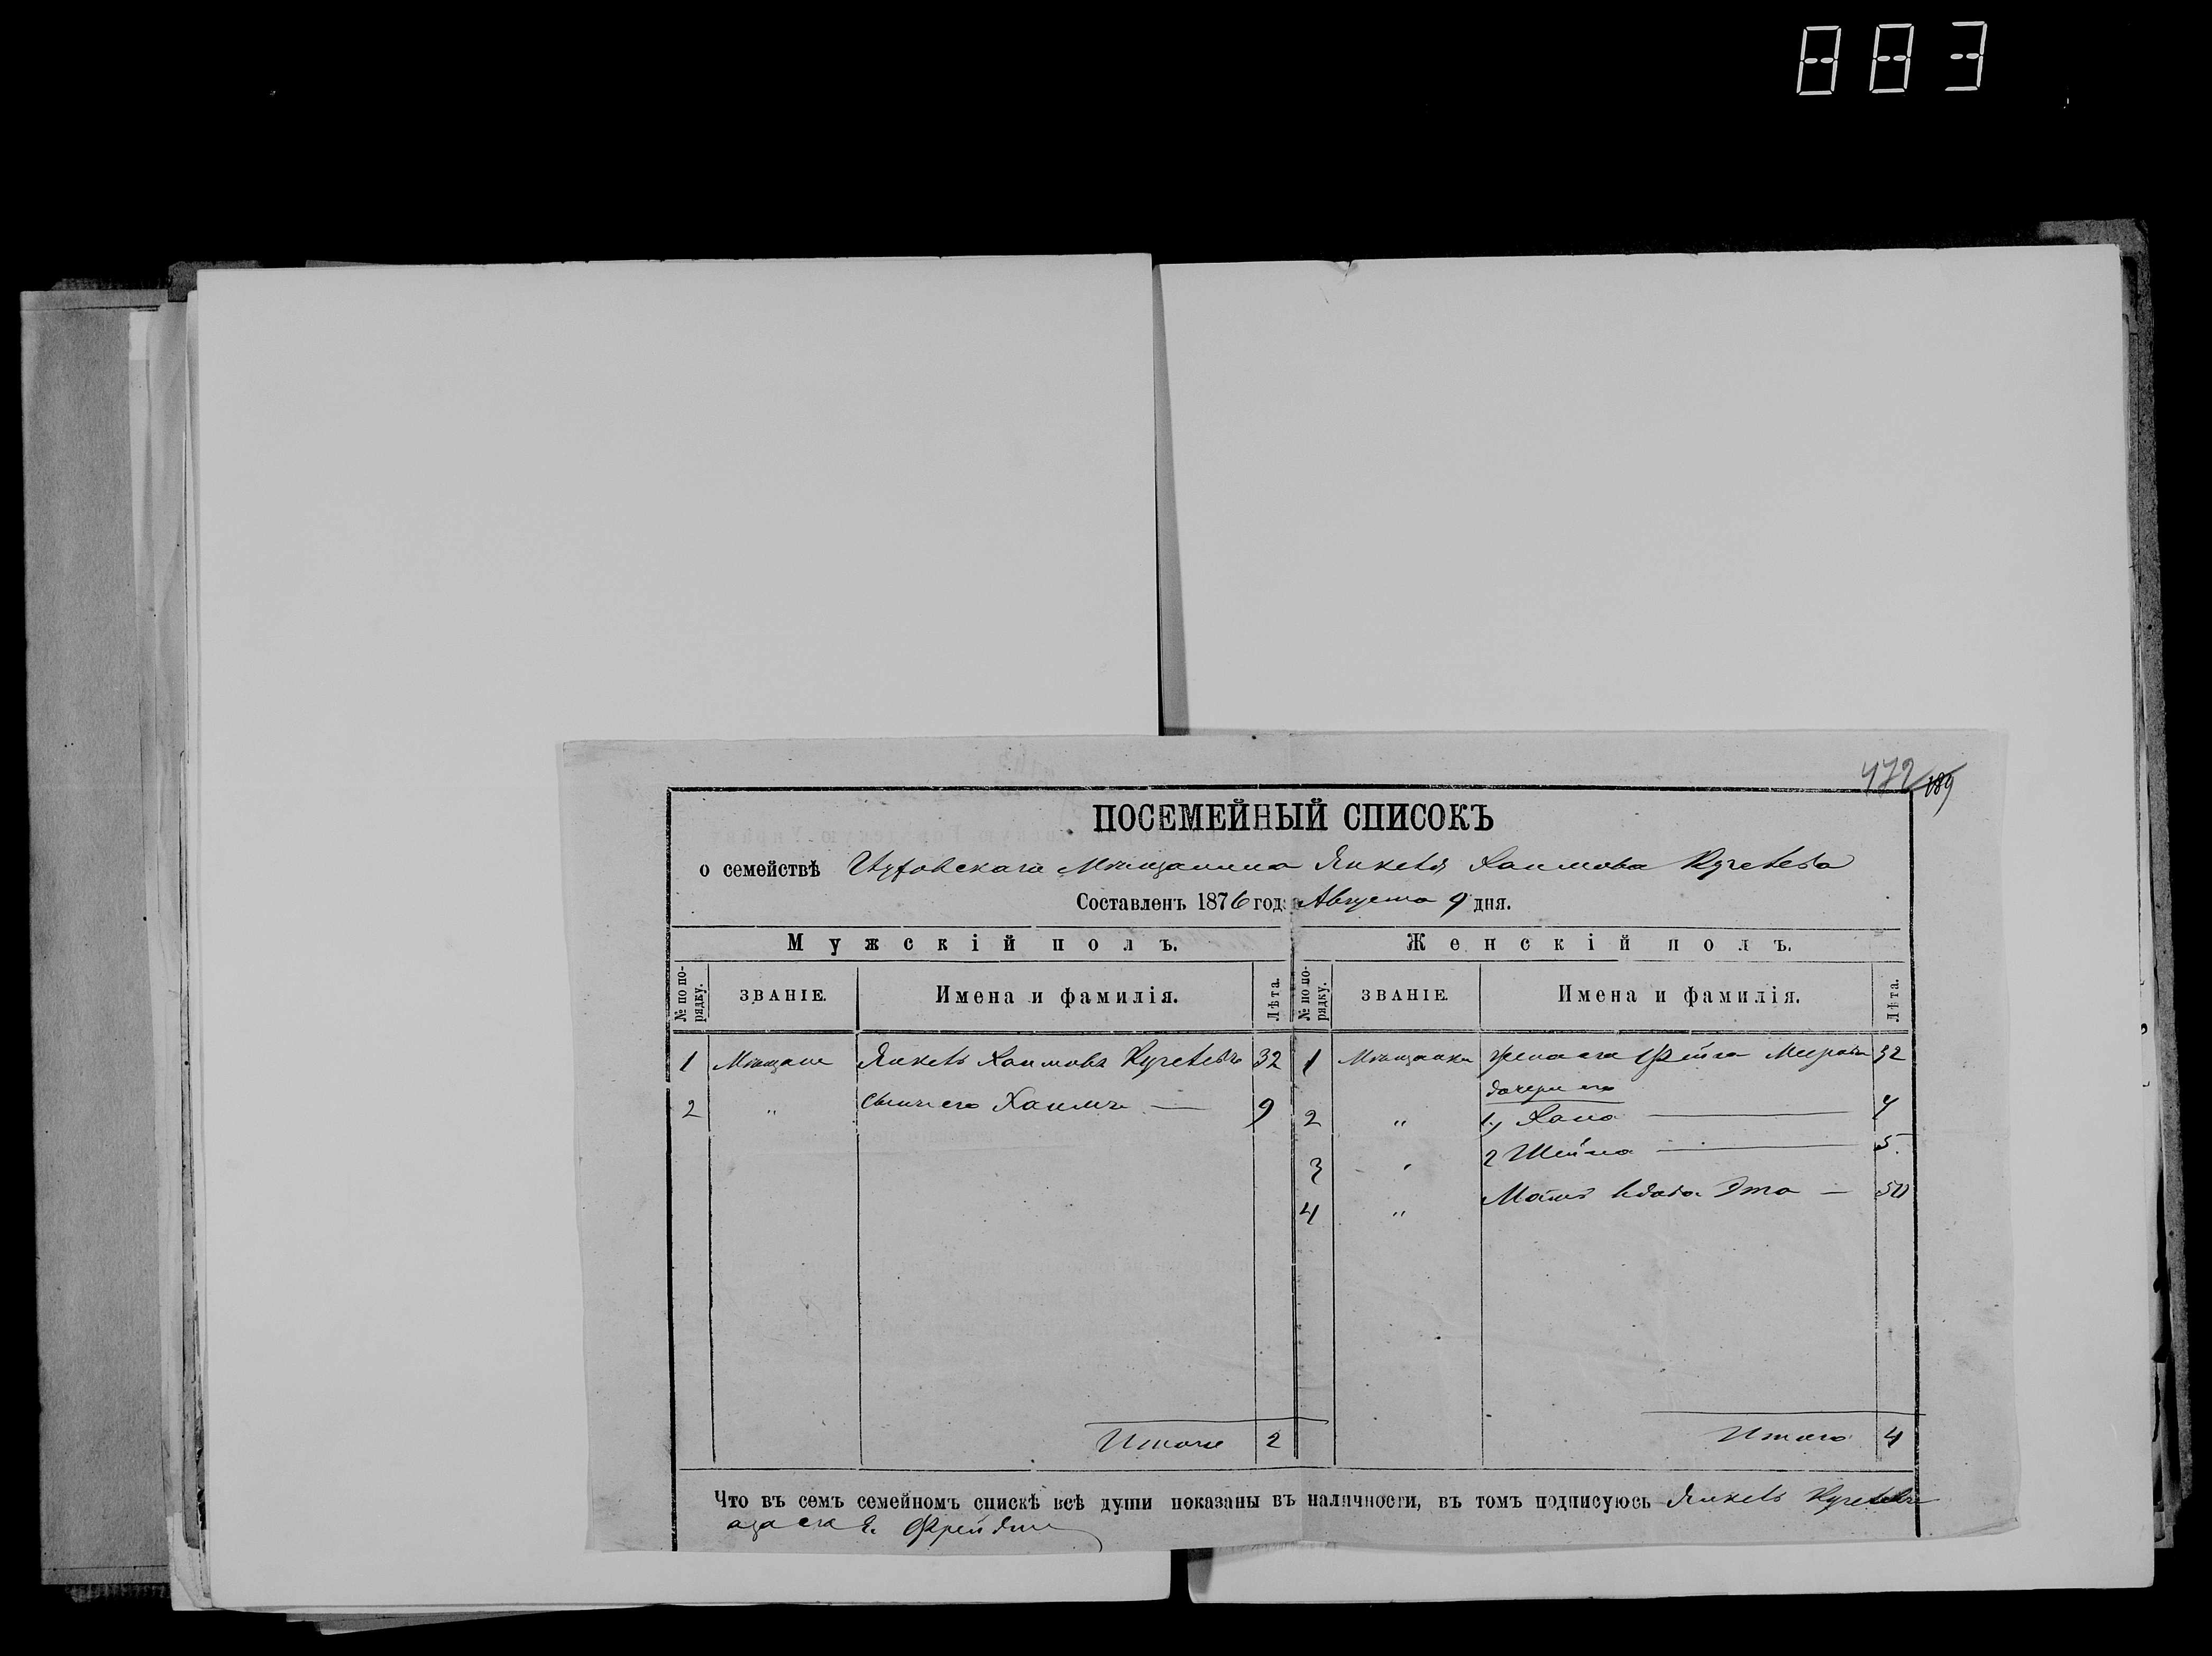 883
472 189
ПОСЕМЕЙНЫЙ СПИСОКЪ
о семействѣ Мѣщанина Янкеля Хаимова
Составленъ 1876 года Августа 9 дня.
Мужскій полъ. Женскій полъ.
№ по порядку. ЗВАНІЕ. Имена и фамилія. Лѣта. № по порядку. ЗВАНІЕ. Имена и фамилія. Лѣта.
1 Мѣщане Янкель Хаимовъ 32 1 Мѣщанки жена его Фейга 32
дочери его
2 " сынъ его Хаимъ — 9 2 " 1, Хана —
3 " 2 Шейна — 5.
4 " Мать вдова Эта — 50
Итого 2 Итого 4
Что въ семъ семейномъ спискѣ всѣ души показаны въ наличности, въ томъ подписуюсь Янкель